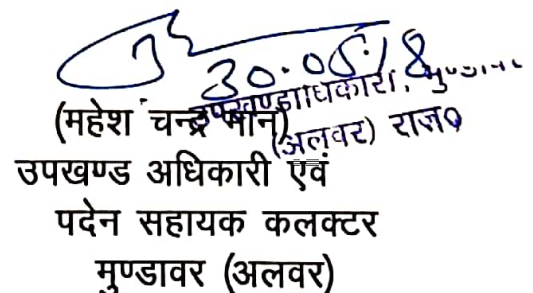 30.05.18
उपखण्डाधिकारी, मुण्डावर
(अलवर) राज०
(महेश चन्द्र मान)
उपखण्ड अधिकारी एवं
पदेन सहायक कलक्टर
मुण्डावर (अलवर)